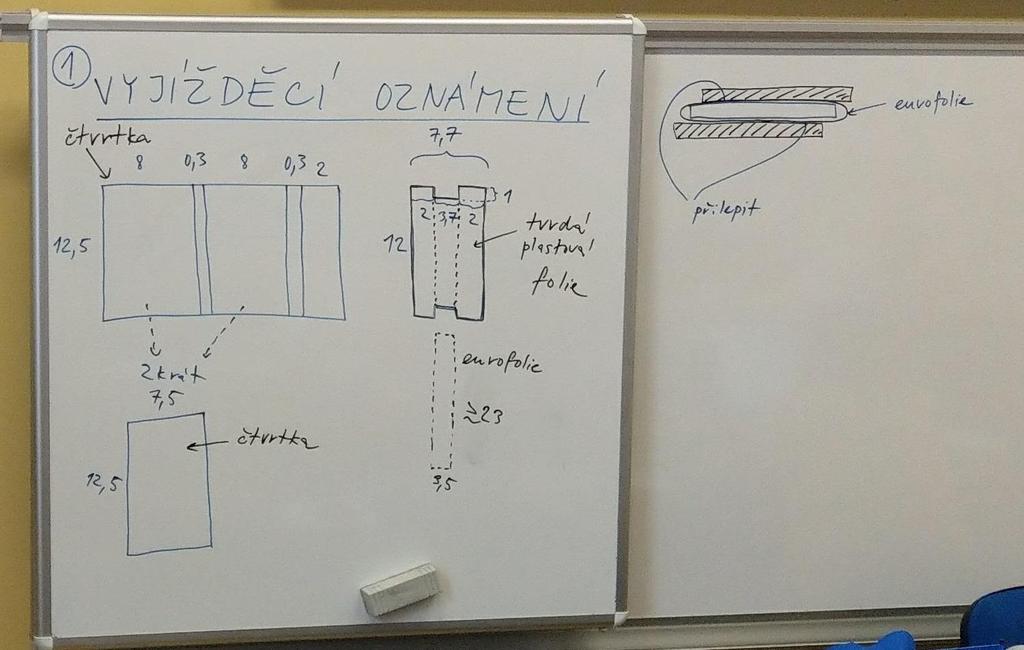 1 VYJÍŽDĚCÍ OZNÁMENÍ
čtvrtka
8 0,3 8 0,3 2
12,5
2krát
7,5
čtvrtka
12,5
7,7
1
2 3,7 2
12
tvrdá
plastová
folie
eurofolie
≥23
3,5
eurofolie
přilepit